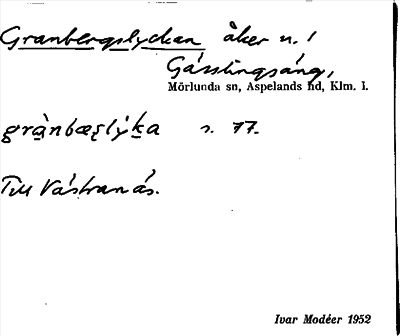 Granbergslyckan åker n. 1
Gässlingsäng,
Mörlunda sn, Aspelands hd, Klm. l.
s. 77.
Till Västranäs.
Ivar Modéer 1952